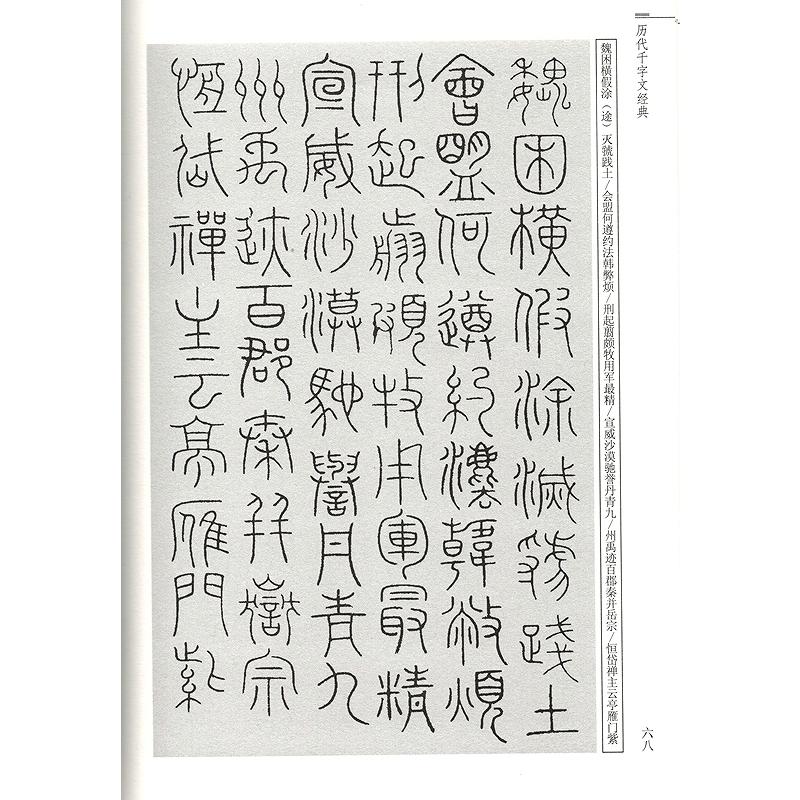 历代千字文经典
魏困横假涂（途）灭虢践土/会盟何遵约法韩弊烦/刑起翦颇牧用军最精/宣威沙漠驰誉丹青九/州禹迹百郡秦并岳宗/恒岱禅主云亭雁门紫
魏困橫假涂滅虢踐土
會盟何遵約灋韓弊煩
刑起翦頗牧用軍最精
宣威沙漠馳譽丹青九
州禹迹百郡秦并嶽宗
恆岱禪主云亭雁門紫
六八